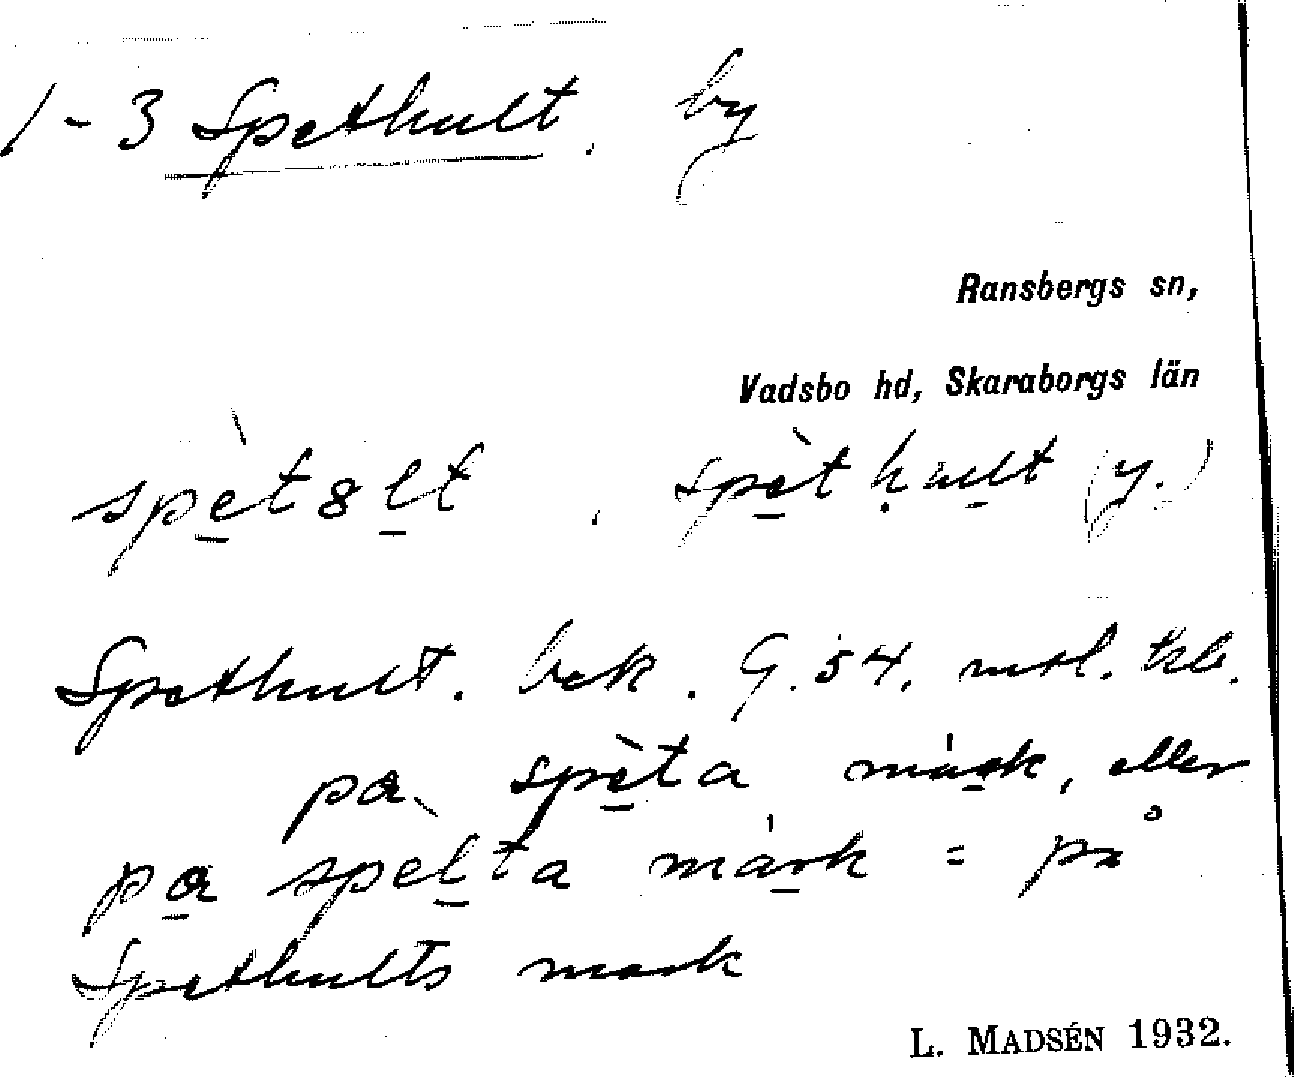 1-3 Spethult. by
Ransbergs sn,
Vadsbo hd, Skaraborgs län
spèt8lt, spèthult (y.)
Spethult. bek. G. 54.
pa spèta mark, eller
pa spèlta mark = på
Spethults mark
L. MADSÉN 1932.